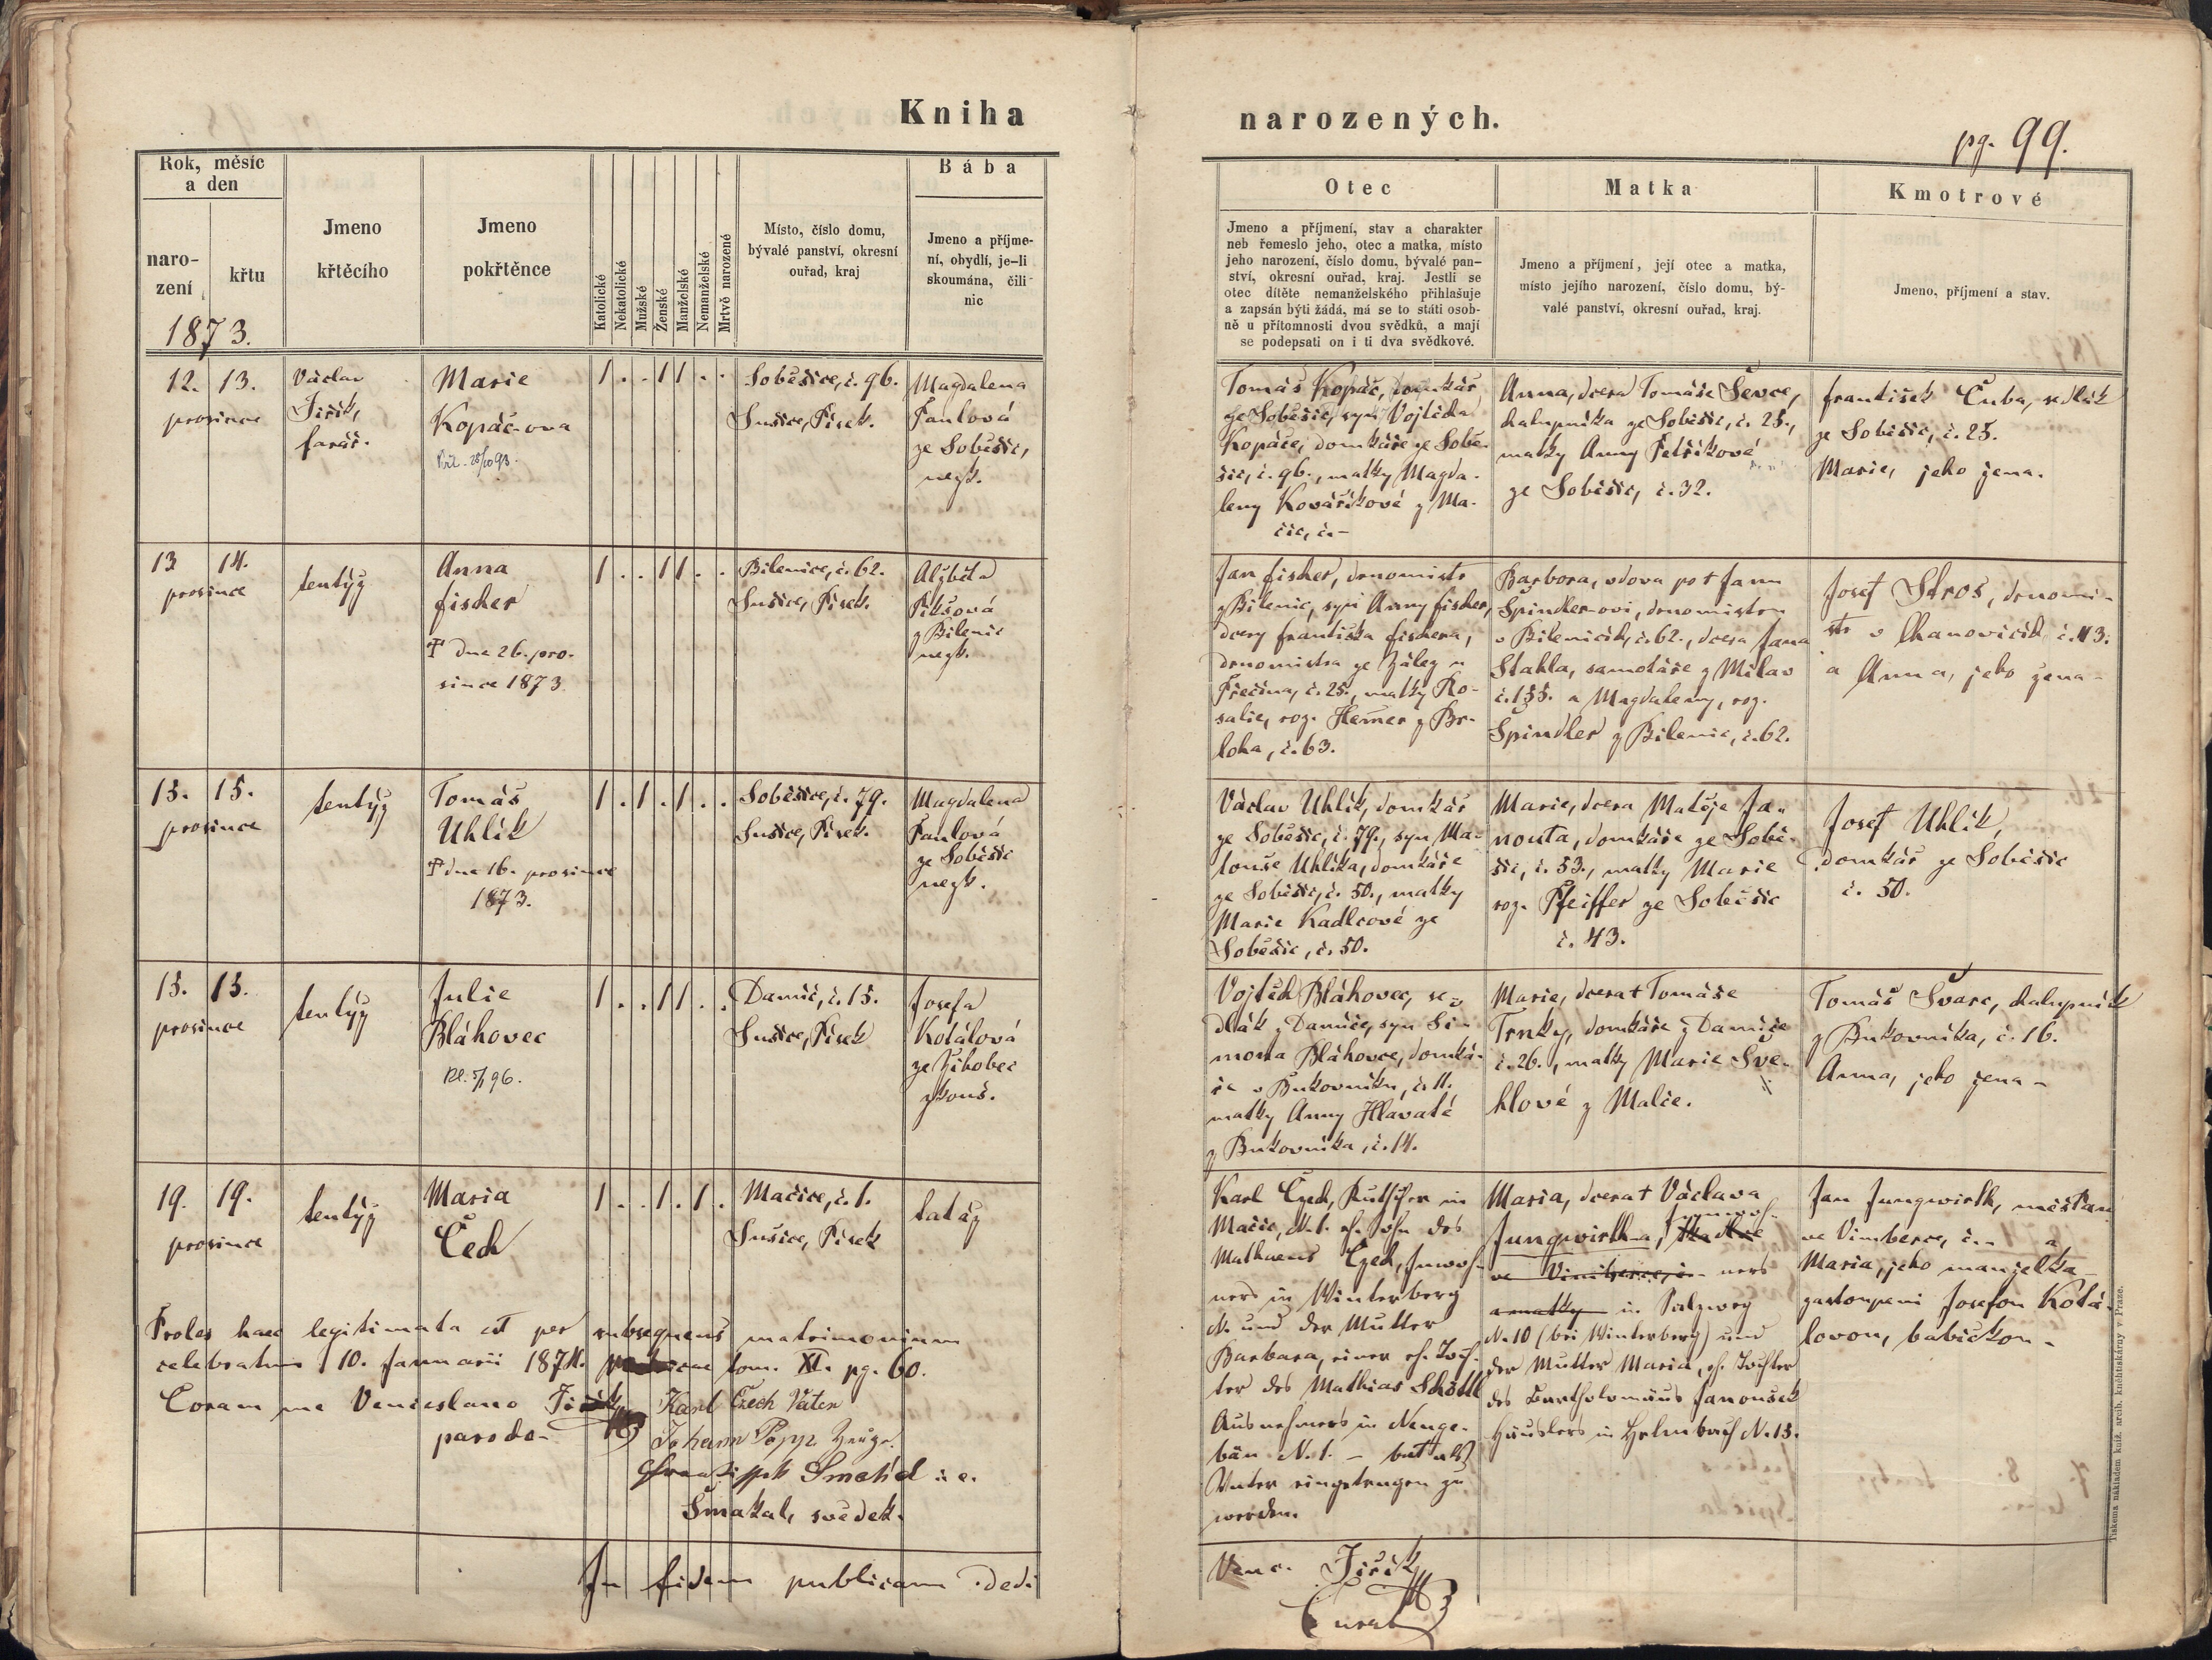 Kniha
narozených.
pg. 99.
Rok, měsíc
a den
naro-
zení
křtu
1873.
Jmeno
křtěcího
Jmeno
pokřtěnce
Katolické
Nekatolické
Mužské
Ženské
Manželské
Nemanželské
Mrtvě narozené
Místo, číslo domu,
bývalé panství, okresní
ouřad, kraj
Bába
Jmeno a příjme-
ní, obydlí, je-li
skoumána, čili
nic
Otec
Jmeno a příjmení, stav a charakter
neb řemeslo jeho, otec a matka, místo
jeho narození, číslo domu, bývalé pan-
ství, okresní ouřad, kraj. Jestli se
otec dítěte nemanželského přihlašuje
a zapsán býti žádá, má se to státi osob-
ně u přítomnosti dvou svědků, a mají
se podepsati on i ti dva svědkové.
Matka
Jmeno a příjmení, její otec a matka,
místo jejího narození, číslo domu, bý-
valé panství, okresní ouřad, kraj.
Kmotrové
Jmeno, příjmení a stav.
12. 13.
prosince
Václav
Jiřík,
farář.
Marie
Kopáč-ova
1 . . 1 1 . .
Soběšice, č. 96.
Sušice, Písek.
Magdalena
Paulová
ze Soběšic,
nezk.
Tomáš Kopáč, domkář
ze Soběšic, syn Vojtěcha
Kopáče, domkáře ze Sobě-
šic, č. 96., matky Magda-
leny Kováříkové z Ma-
čic, č. –
Anna, dcera Tomáše Ševce,
chalupníka ze Soběšic, č. 25.,
matky Anny Petříkové
ze Soběšic, č. 32.
František Čuba, sedlák
ze Soběšic, č. 25.
Marie, jeho žena.
13 14.
prosince
tentýž
Anna
Fischer
† dne 26. pro-
since 1873.
1 . . 1 1 . .
Bilenice, č. 62.
Sušice, Písek.
Alžběta
Pikšová
z Bilenic
nezk.
Jan Fischer, drnomistr
z Bilenic, syn Anny Fischer,
dcery Františka Fischera,
drnomistra ze Zálezu
Přečina, č. 25., matky Ro-
salie, roz. Hemer z Br-
loha, č. 63.
Barbora, vdova po † Janu
Špindler-ovi, drnomistru
v Bilenicích, č. 62., dcera Jana
Stahla, samotáře z Milav
č. 155. a Magdaleny, roz.
Špindler z Bilenic, č. 62.
Josef Stros, drnomi-
str v Chanovicích č. 113.
a Anna, jeho žena –
15. 15.
prosince
tentýž
Tomáš
Uhlík
† dne 16. prosince
1873.
1 . 1 . 1 . .
Soběšice, č. 79.
Sušice, Písek.
Magdalena
Paulová
ze Soběšic
nezk.
Václav Uhlík, domkář
ze Soběšic, č. 79., syn Ma-
touše Uhlíka, domkáře
ze Soběšic, č. 50., matky
Marie Kadlcové ze
Soběšic, č. 50.
Marie, dcera Matěje Ja-
nouta, domkáře ze Sobě-
šic, č. 53., matky Marie
roz. Pfeiffer ze Soběšic
č. 43.
Josef Uhlík,
domkář ze Soběšic
č. 50.
15. 15.
prosince
tentýž
Julie
Bláhovec
1 . . 1 1 . .
Damíč, č. 15.
Sušice, Písek
Josefa
Kotálová
ze Žihobec
zkouš.
Vojtěch Bláhovec, se-
dlák z Damíče, syn Ši-
mona Bláhovce, domká-
ře v Bukovníku, č. 11.
matky Anny Hlavaté
z Bukovníka, č. 14.
Marie, dcera † Tomáše
Trnky, domkáře z Damíče
č. 26., matky Marie Sve-
hlové z Malče.
Tomáš Švarc, chalupník
z Bukovníka, č. 16.
Anna, jeho žena –
19. 19.
prosince
tentýž
Maria
Čech
1 . . 1 . 1 .
Mačice, č. 1.
Sušice, Písek
tatáž
Karl Czech, Kutscher in
Mačic, N. 1. eh. Sohn des
Mathaeus Czech, Inwoh-
ners in Winterberg
N. und der Mutter
Barbara, einer eh. Toch-
ter des Mathias Schöttl
Ausnehmers in Neuge-
bäu N. 1. – bat als
Vater eingetragen zu
werden.
Maria, dcera † Václava
Jungwirtha, Inwoh-
ve Vimberce, č. ners
a matky in Salzweg
N. 10 (bei Winterberg) und
der Mutter Maria, eh. Tochter
des Bartholomäus Janoušek
Häuslers in Helmbach N. 13.
Jan Jungwirth, měšťan
ve Vimberce, č. – a
Maria, jeho manželka
zastoupeni Josefou Kotá-
lovou, babičkou –
Proles haec legitimata est per subsequens matrimonium
celebratum 10. Januarii 1874. tom. XI. pg. 60.
Coram me Venceslao Jiřík,
parocho –
Karl Czech Vater
Johann Popp Zeuge.
Smakal, svědek.
In fidem publicam dedi
Venc. Jiřík
Curat
Tiskem a nákladem kníž. arcib. kněhtiskárny v Praze.